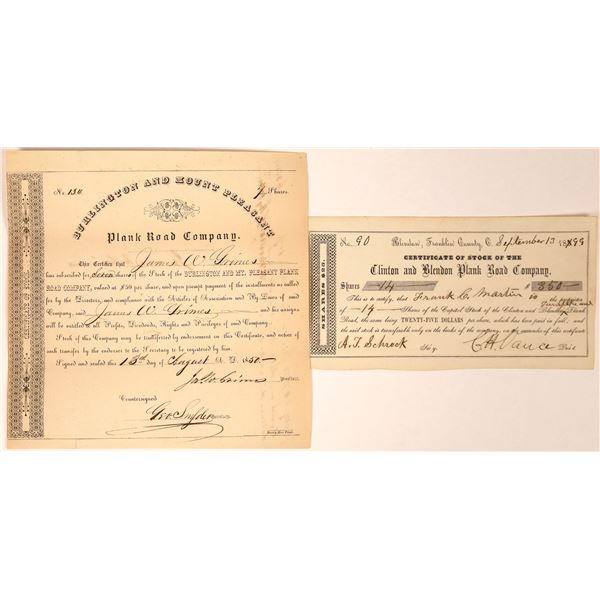 No. 130 7 Shares.
BURLINGTON AND MOUNT PLEASANT
Plank Road Company.
This Certifies that James W Grimes
has subscribed for Seven shares of the Stock of the BURLINGTON AND MT. PLEASANT PLANK
ROAD COMPANY, valued at $50 per share, and upon prompt payment of the installments as called
for by the Directory, and compliance with the Articles of Association and By Laws of said
Company, said James W Grimes and his assigns
will be entitled to all Profits, Dividends, Rights and Privileges of said Company.
Stock of this Company may be transferred by endorsement on this Certificate, and notice
of such transfer by the endorser to the Secretary to be registered by him.
Signed and sealed this 15th day of August A. D. 1850.
Jas. W. Grimes President.
Countersigned
Geo. Snyder
SHARES $25.
No. 90 Blendon, Franklin County, O. September 13 1899
CERTIFICATE OF STOCK OF THE
Clinton and Blendon Plank Road Company.
Shares 14 $ 350
This is to certify, that Frank C. Martin is the
of 14 Shares of the Capital Stock of the Clinton and Blendon Plank
Road, the same being TWENTY-FIVE DOLLARS per share, which has been paid in full, and
the said stock is transferable only on the books of the company, on the surrender of this certificate
A. T. Schrock Sec'y. C H Vance Pres